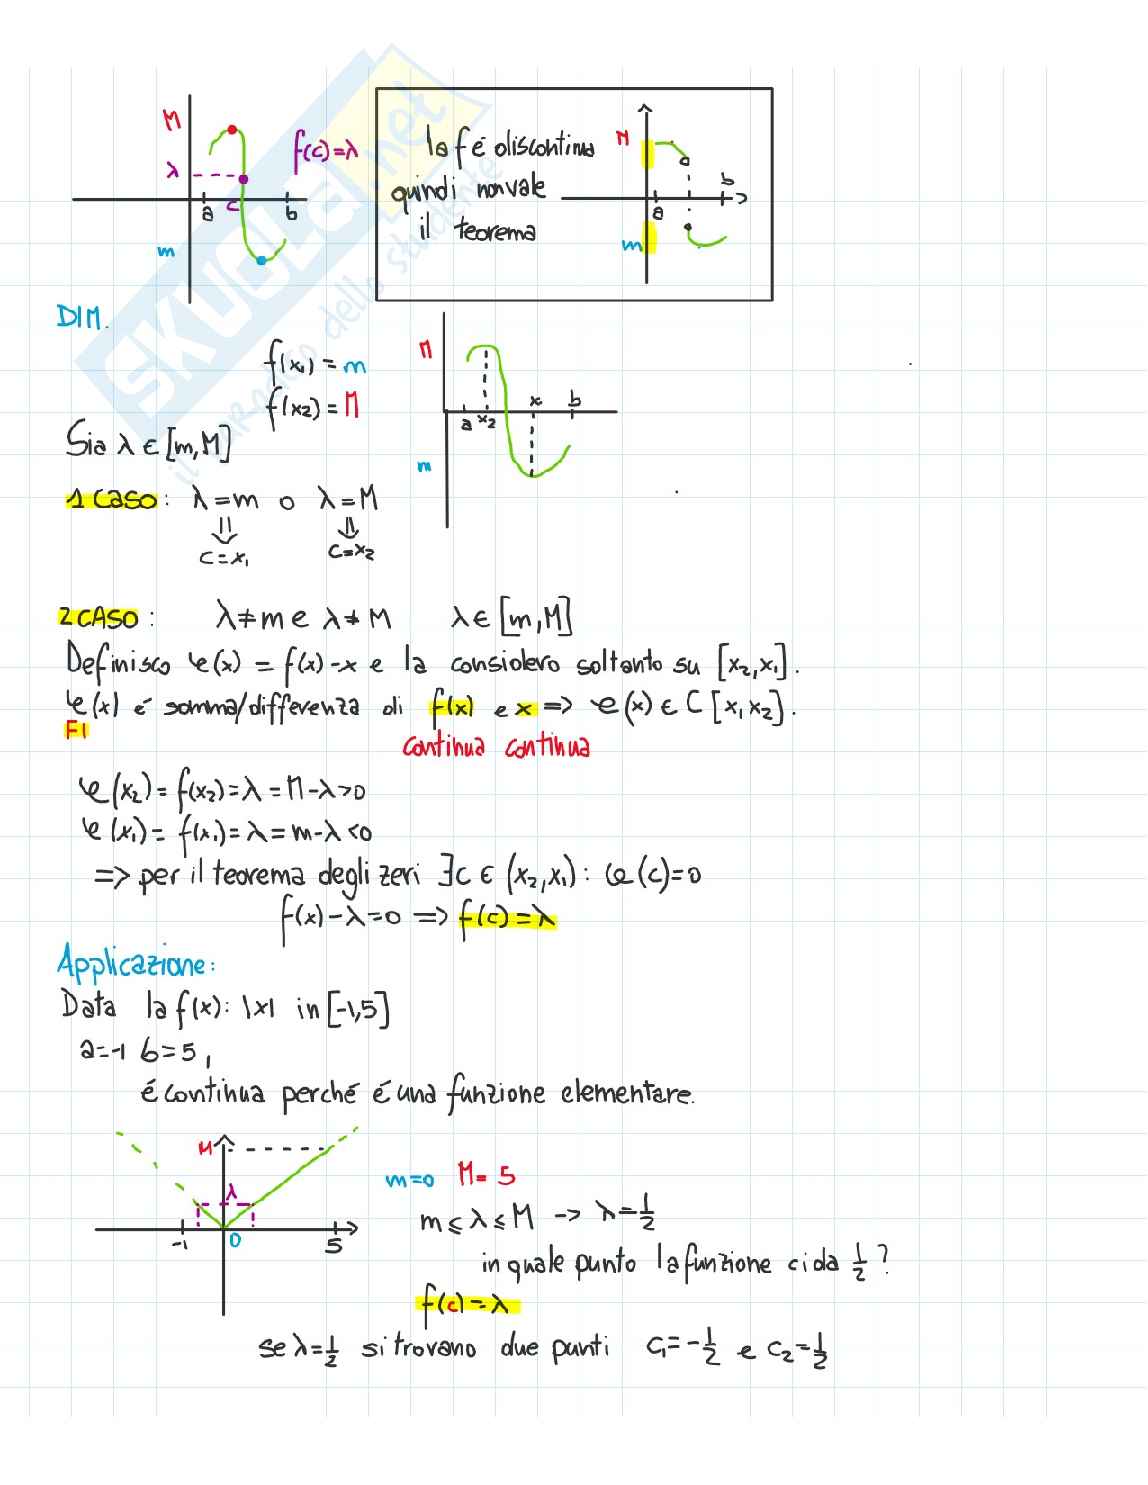 M
λ
f(c)=λ
a
c
b
m
la f é discontinua
quindi non vale
il teorema
M
a
b
m
DIM.
f(x₁) = m
f(x₂) = M
M
a x₂
x
b
m
Sia λ ∈ [m,M]
1 CASO: λ=m o λ=M
⇓ ⇓
c=x₁ c=x₂
2 CASO: λ≠m e λ≠M λ∈[m,M]
Definisco φ(x) = f(x)-x e la considero soltanto su [x₂,x₁].
φ(x) é somma/differenza di f(x) e x => φ(x) ∈ C [x₁ x₂].
F1
continua continua
φ(x₂) = f(x₂)=λ = M-λ>0
φ(x₁) = f(x₁)=λ = m-λ<0
=> per il teorema degli zeri ∃c ∈ (x₂,x₁): φ(c)=0
f(x)-λ=0 => f(c)=λ
Applicazione:
Data la f(x): |x| in [-1,5]
a=-1 b=5,
é continua perché é una funzione elementare.
M
λ
-1
0
5
m=0 M=5
m≤λ≤M -> λ=1/2
in quale punto la funzione ci da 1/2?
f(c)=λ
se λ=1/2 si trovano due punti c₁=-1/2 e c₂=1/2
SKUOLA.net
il paradiso dello studente